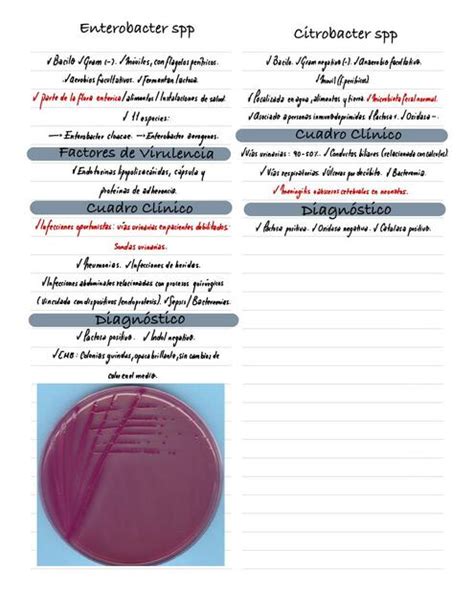 Enterobacter spp
✓Bacilo ✓Gram (-). ✓Móviles, con flagelos perítricos.
✓aerobios facultativos. ✓Fermentan lactosa.
✓parte de la flora entérica/alimentos/Instalaciones de salud.
✓11 especies:
→Enterobacter cloacae. →Enterobacter aerogenes.
Factores de Virulencia
✓Endotoxinas lipopolisacáridas, cápsula y
proteínas de adherencia.
Cuadro Clínico
✓Infecciones oportunistas: vías urinarias en pacientes debilitados.
Sondas urinarias.
✓Neumonías. ✓Infecciones de heridas.
✓Infecciones abdominales relacionadas con procesos quirúrgicos
(vinculado con dispositivos/endoprotesis). ✓Sepsis/Bacteremias.
Diagnóstico
✓Lactosa positivo. ✓Indol negativo.
✓EMB: Colonias guindas, opaco brillante, sin cambios de
color en el medio.
Citrobacter spp
✓Bacilo. ✓Gram negativo (-). ✓Anaerobio facultativo.
✓Movil (peritricos)
✓Localizada en agua, alimentos y tierra ✓Microbiota fecal normal.
✓Asociado a personas inmunodeprimidas ✓Lactosa +. ✓Oxidasa -.
Cuadro Clínico
✓Vías urinarias: 40-50%. ✓Conductos biliares (relacionada con cálculos).
✓Vías respiratorias ✓Úlceras por decúbito. ✓Bacteremia.
✓Meningitis abscesos cerebrales en neonatos.
Diagnóstico
✓Lactosa positiva. ✓Oxidasa negativa. ✓Catalasa positivo.